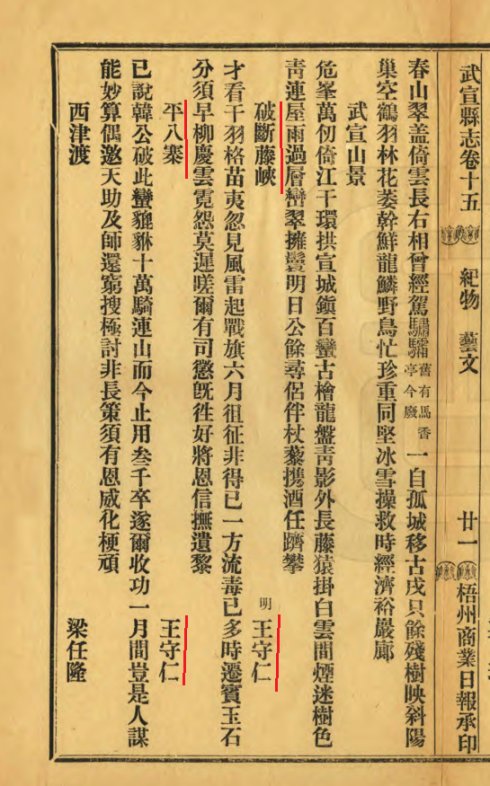 武宣縣志卷十五 紀物 藝文 廿一 梧州商業日報承印
春山翠蓋倚雲長右相曾經駕驌驦舊有馬香亭今廢一自孤城移古戌只餘殘樹映斜陽
巢空鶴羽林花萎幹鮮龍鱗野鳥忙珍重同堅冰雪操救時經濟裕巖廊
武宣山景
危峯萬仞倚江干環拱宣城鎭百蠻古檜龍盤靑影外長藤猿掛白雲間煙迷樹色
靑連屋雨過層巒翠擁鬟明日公餘尋侶伴杖藜携酒任躋攀
破斷藤峽 明 王守仁
才看干羽格苗夷忽見風雷起戰旗六月徂征非得已一方流毒已多時遷賓玉石
分須早柳慶雲霓怨莫遲嗟爾有司懲旣徃好將恩信撫遺黎
平八寨 王守仁
已說韓公破此蠻貔貅十萬騎連山而今止用叁千卒遂爾收功一月間豈是人謀
能妙算偶邀天助及師還窮搜極討非長策須有恩威化梗頑
西津渡 梁任隆